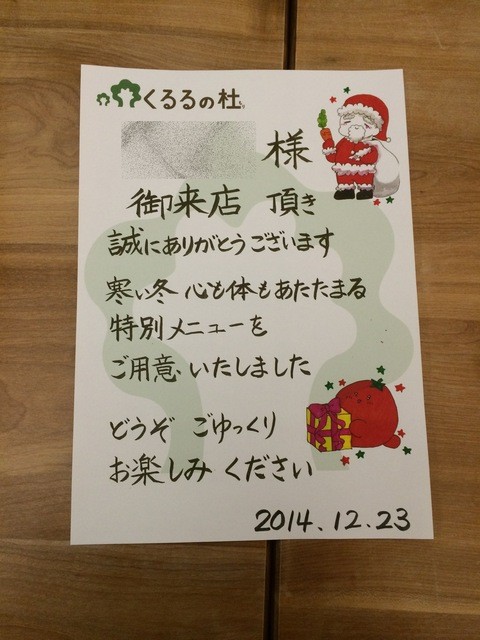 くるるの杜
様
御来店 頂き
誠にありがとうございます
寒い冬 心も体もあたたまる
特別メニューを
ご用意いたしました
どうぞ ごゆっくり
お楽しみ ください
2014.12.23